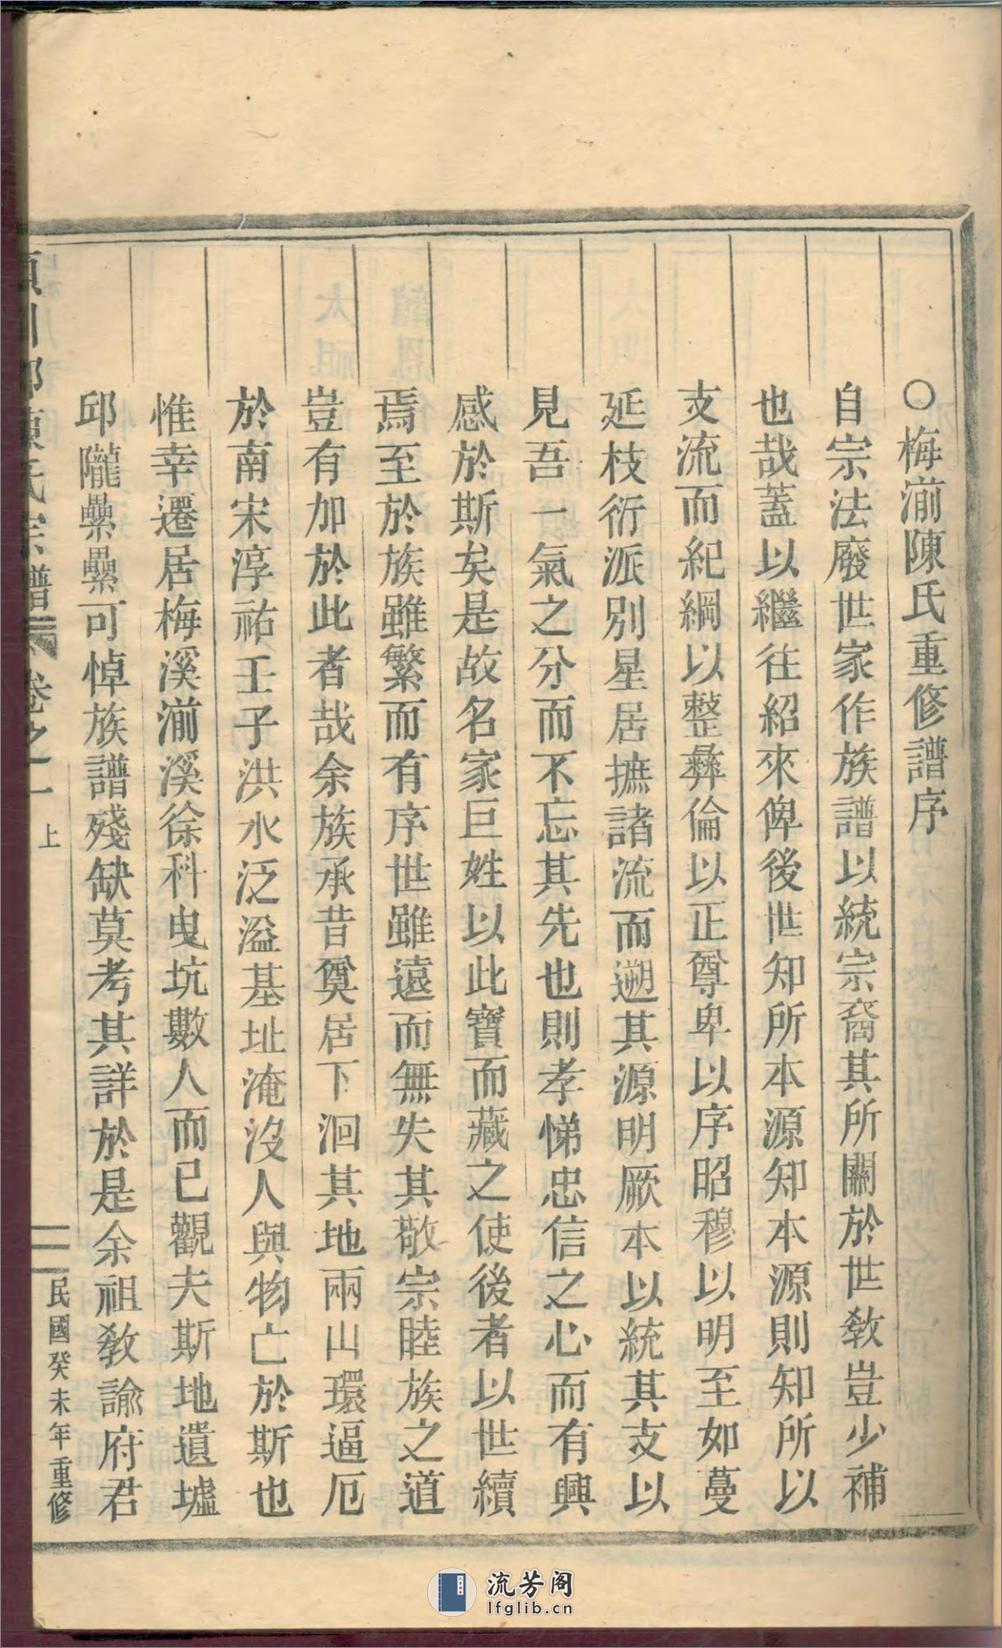 ○梅湔陳氏重修譜序
自宗法廢世家作族譜以統宗裔其所關於世敎豈少補
也哉蓋以繼往紹來俾後世知所本源知本源則知所以
支流而紀綱以整彝倫以正尊卑以序昭穆以明至如蔓
延枝衍派別星居摭諸流而遡其源明厥本以統其支以
見吾一氣之分而不忘其先也則孝悌忠信之心而有興
感於斯矣是故名家巨姓以此寶而藏之使後者以世續
焉至於族雖繁而有序世雖遠而無失其敬宗睦族之道
豈有加於此者哉余族承昔奠居下洄其地兩山環逼厄
於南宋淳祐壬子洪水泛溢基址淹沒人與物亡於斯也
惟幸遷居梅溪湔溪徐科曳坑數人而已觀夫斯地遺墟
邱隴纍纍可悼族譜殘缺莫考其詳於是余祖敎諭府君
川郡陳氏宗譜 卷之一 上 民國癸未年重修
流芳阁
lfglib.cn